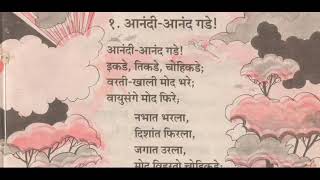 १. आनंदी-आनंद गडे!
आनंदी-आनंद गडे!
इकडे, तिकडे, चोहिकडे;
वरती-खाली मोद भरे;
वायुसंगे मोद फिरे;
नभात भरला,
दिशांत फिरला,
जगात उरला,
मोद विहरतो चोहिकडे;